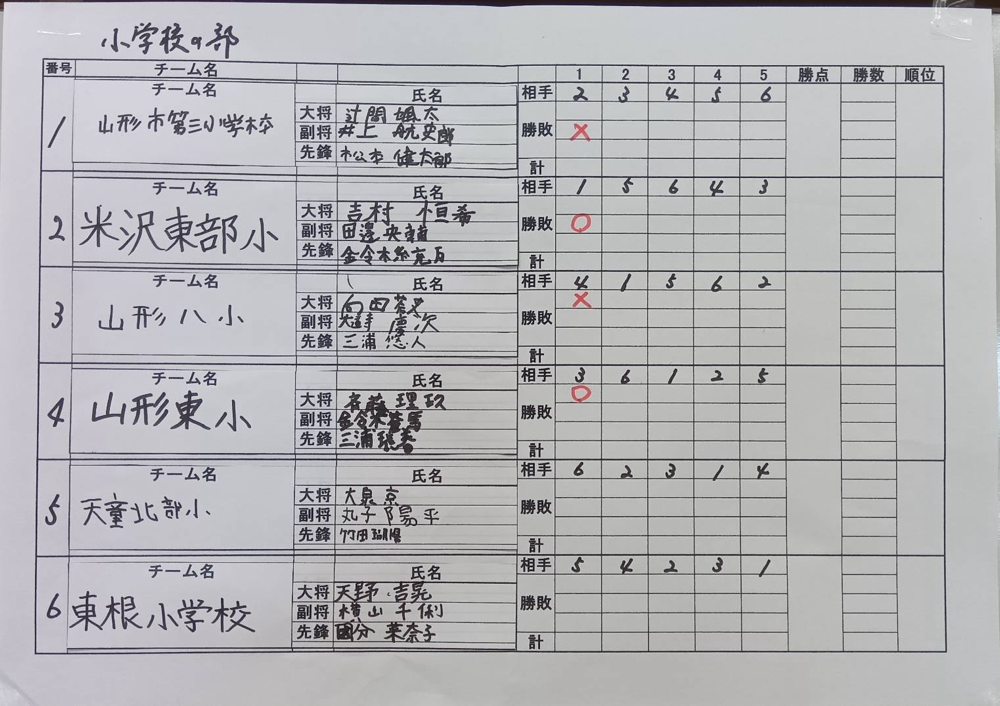 小学校の部
番号 チーム名 1 2 3 4 5 勝点 勝数 順位
1 チーム名 氏名 相手 2 3 4 5 6
山形市第三小学校
大将
副将 井上 航史郎 勝敗 ×
先鋒 松本 健太郎
計
2 チーム名 氏名 相手 1 5 6 4 3
米沢東部小
大将 吉村 恒希
副将 田邊央輔 勝敗 ○
先鋒 金令木
計
3 チーム名 氏名 相手 4 1 5 6 2
山形八小
大将 向田 ×
副将 慶次 勝敗
先鋒 三浦悠人
計
4 チーム名 氏名 相手 3 6 1 2 5
山形東小
大将 斉藤 理玖 ○
副将 勝敗
先鋒 三浦
計
5 チーム名 氏名 相手 6 2 3 1 4
天童北部小
大将 大泉京
副将 丸子陽平 勝敗
先鋒 竹田
計
6 チーム名 氏名 相手 5 4 2 3 1
東根小学校
大将 天野 吉晃
副将 横山 千俐 勝敗
先鋒 國分 菜奈子
計